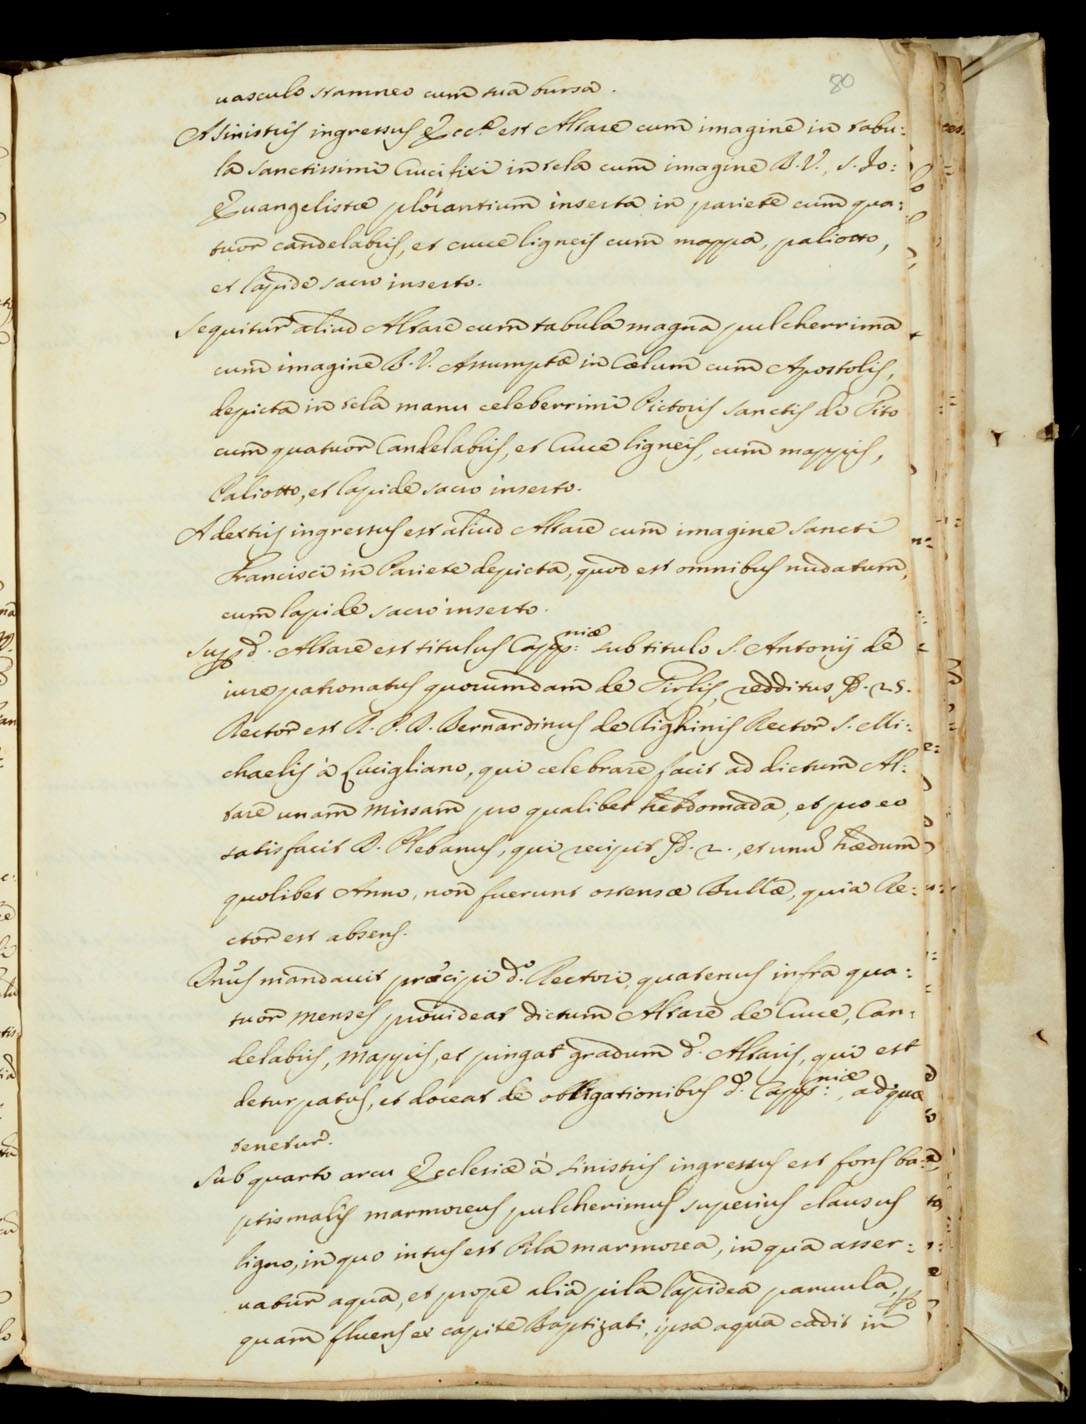 80
vasculo stamneo cum sua bursa.
A sinistris ingressus Eccl.ę est Altare cum imagine in tabu:
la Sanctissimi Crucifixi in tela cum imagine B. V., S. Jo:
Evangelistæ plorantium inserta in pariete cum qua:
tuor candelabris, et cruce ligneis cum mappa, paliotto,
et lapide sacro inserto.
Sequitur aliud Altare cum tabula magna pulcherrima
cum imagine B. V. Assumptæ in Cælum cum Apostolis,
depicta in tela manu celeberrimi Pictoris Sanctis de Tito
cum quatuor Candelabris, et Cruce ligneis, cum mappis,
Paliotto, et lapide sacro inserto.
A dextris ingressus est aliud Altare cum imagine Sancti
Francisci in Pariete depicta, quod est omnibus nudatum,
cum lapide sacro inserto.
Supd.º Altare est titulus Capp:niæ sub titulo S. Antonij de
iure patronatus quorumdam de Pirlis, redditus ſt. 25.
Rector est R. P. D. Bernardinus de Righinis Rector S. Mi:
chaelis à Lucigliano, qui celebrare facit ad dictum Al:
tare unam Missam pro qualibet hebdomada, et pro eo
satisfacit D. Plebanus, qui recipit ſt. 2., et unũ hædum
quolibet Anno, non fuerunt ostensæ Bullæ, quia Re:
ctor est absens.
Dnus mandavit præcipi d.º Rectori, quatenus infra qua:
tuor menses provideat dictum Altare de Cruce, Can:
delabris, Mappis, et pingat gradum d.º Altaris, qui est
deturpatus, et doceat de obligationibus d.ę Capp:niæ, ad quæ
tenetur.
Sub quarto arcu Ecclesiæ à sinistris ingressus est fons ba:
ptismalis marmoreus pulcherimus superius clausus
ligno, in quo intus est Pila marmorea, in qua asser:
vatur aqua, et prope alia pila lapidea parvula, p
quam fluens ex capite Baptizati, ipsa aqua cadit in